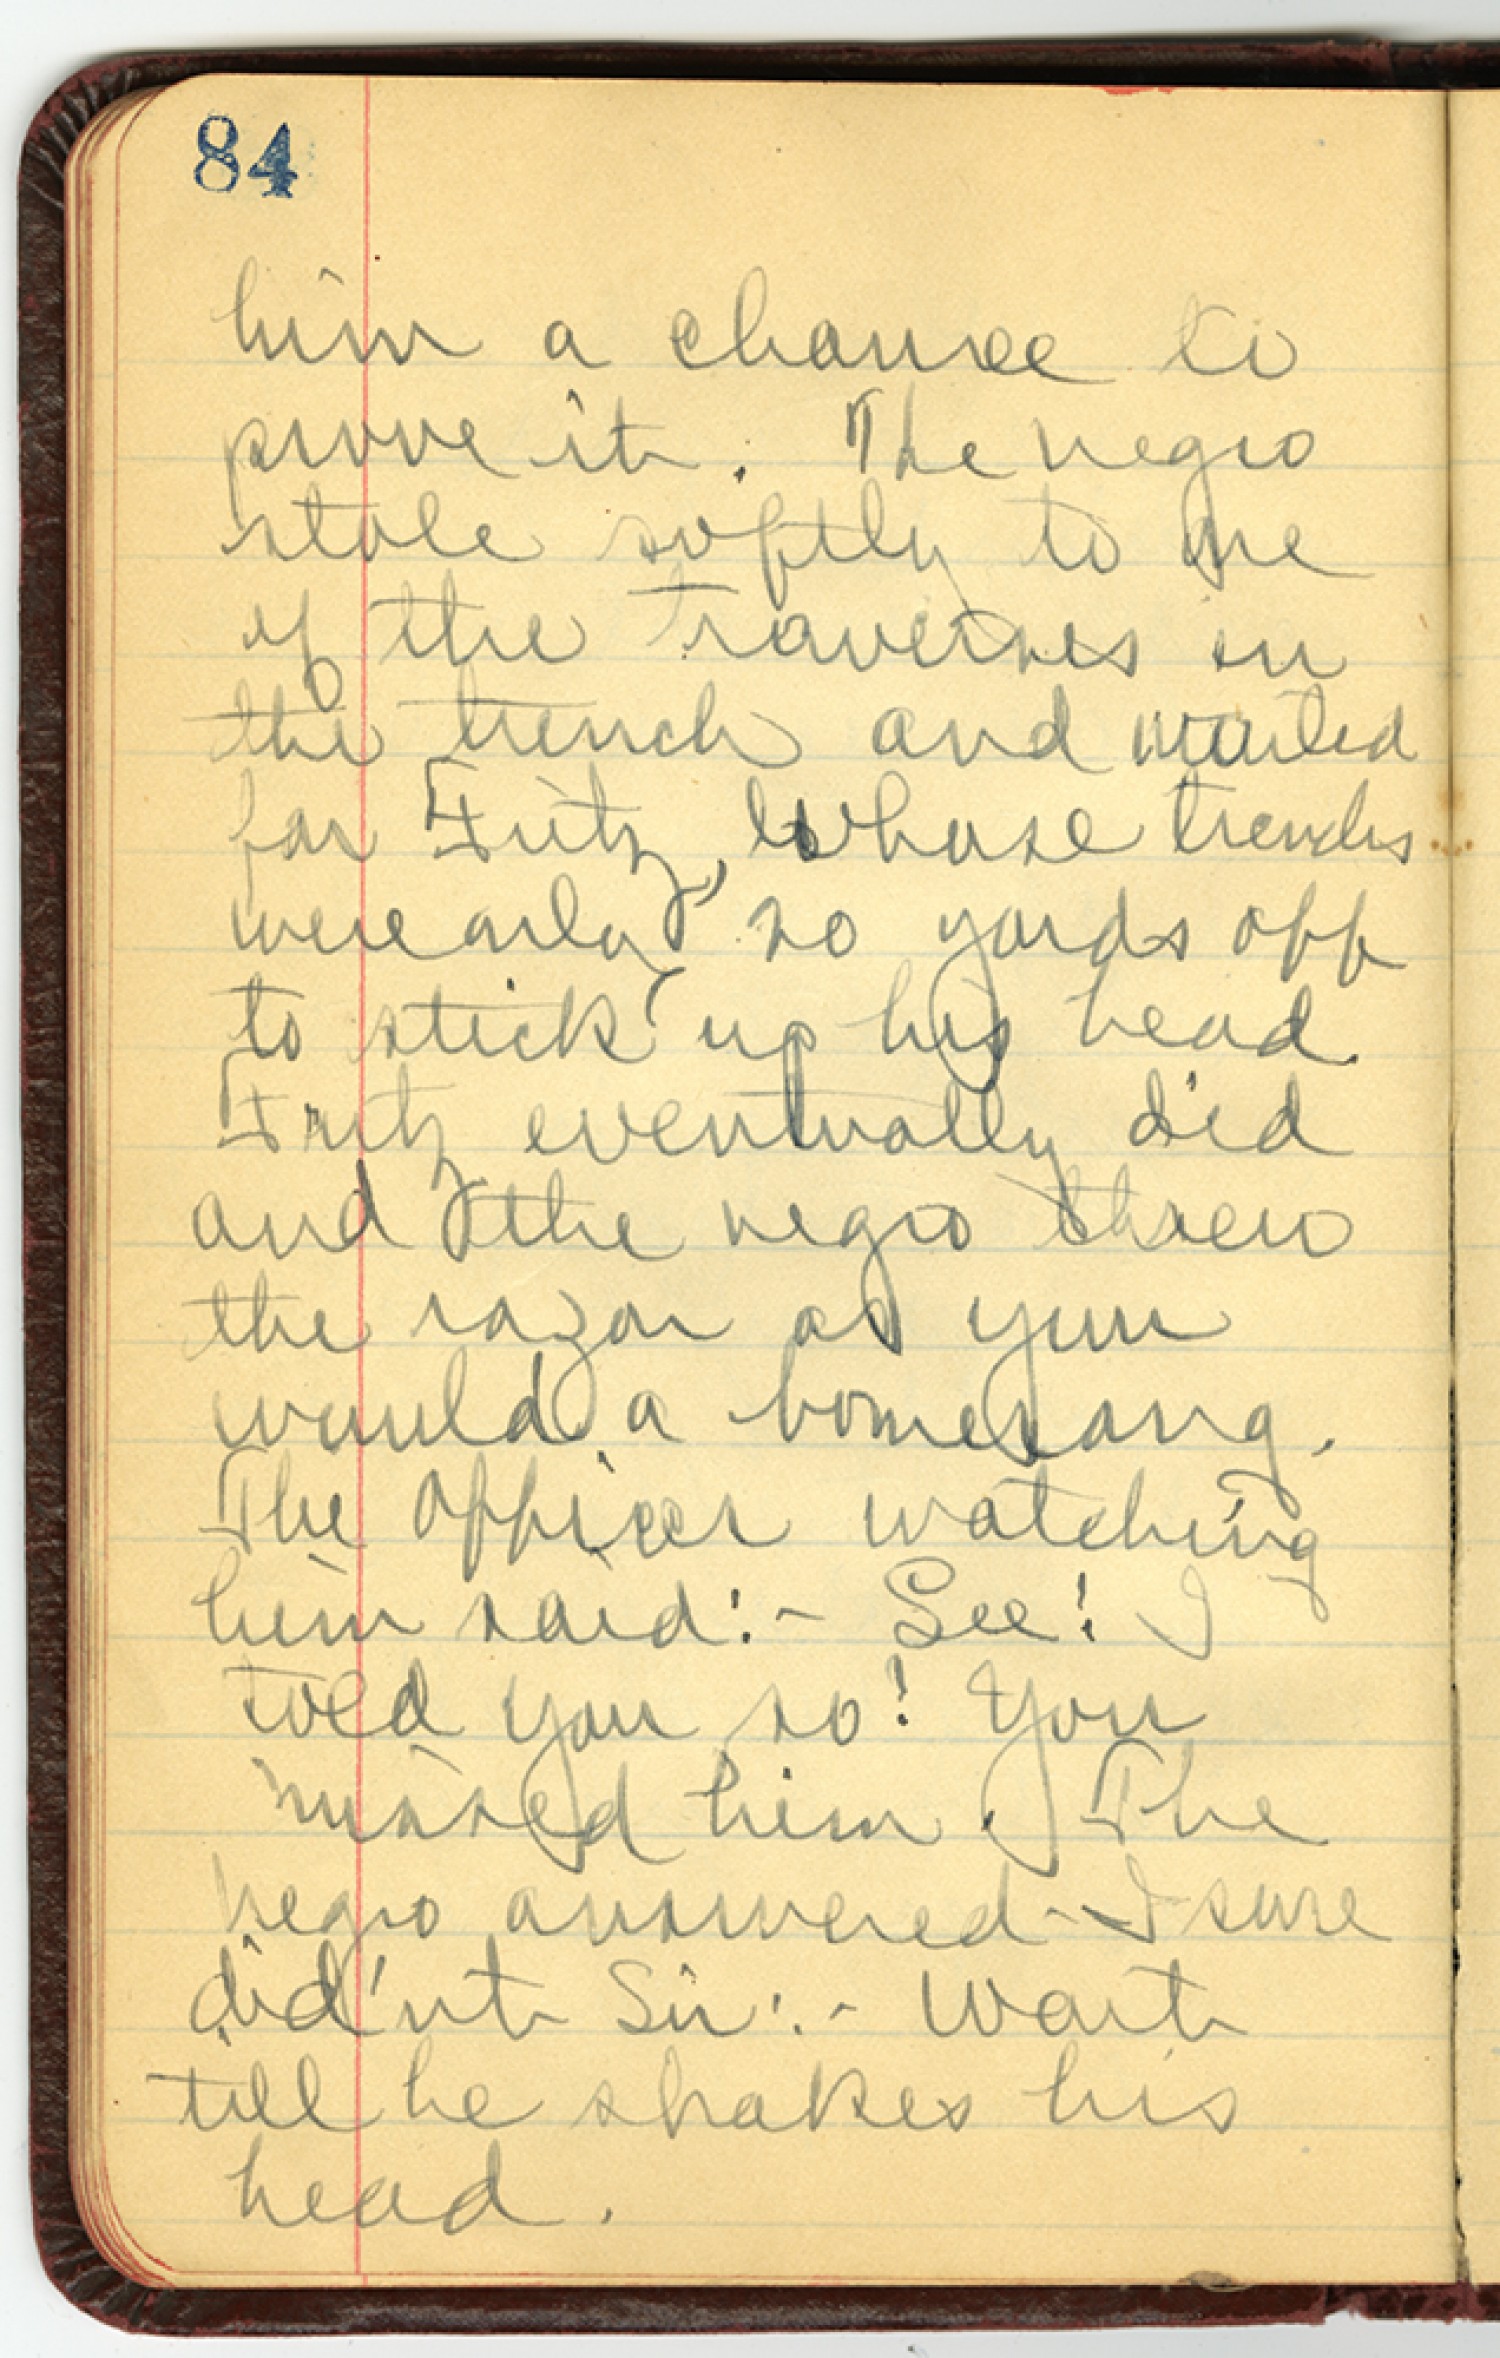 84
him a chance to
prove it. The negro
stole softly to one
of the Traverses in
the trench and waited
for Fritz, whose trenches
were only 20 yards off
to stick up his head.
Fritz eventually did
and the negro threw
the razor as you
would a bomerang.
The Officer watching
him said:- See! I
told you so! You
missed him. The
negro answered - I sure
did'nt Sir:- Wait
till he shakes his
head.